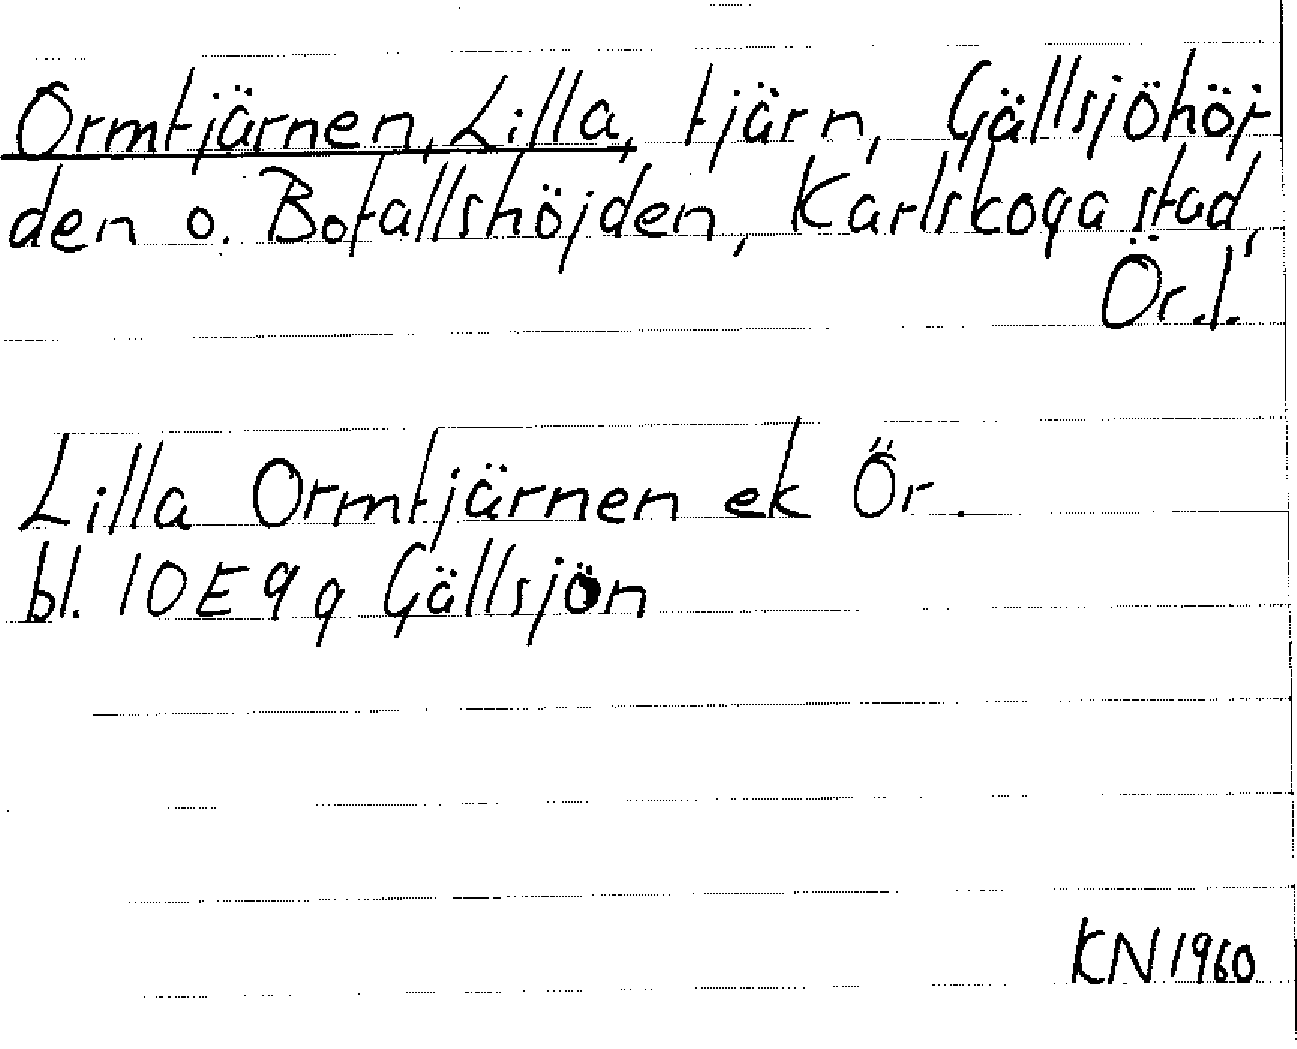 Ormtjärnen, Lilla, tjärn, Gällsjöhöj-
den o. Bofallshöjden, Karlskoga stad,
Ör. l.
Lilla Ormtjärnen ek Ör.
bl. 10E9g Gällsjön
KN 1960